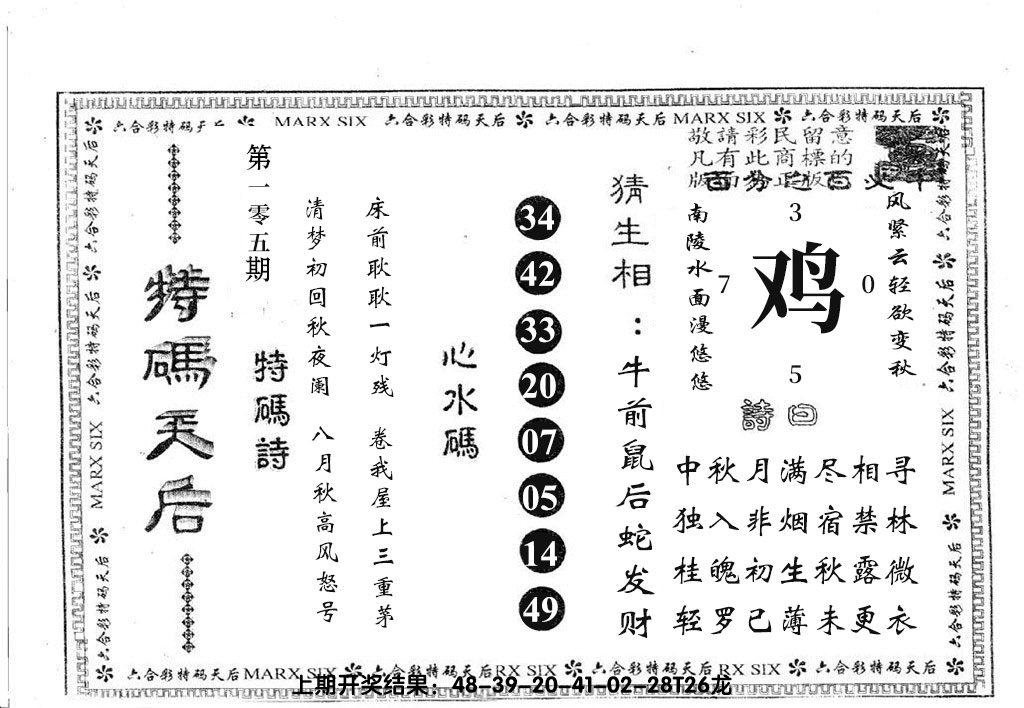 六合彩特码天后 MARX SIX 六合彩特码天后 六合彩特码天后 MARX SIX 六合彩特码天后
敬請彩民留意
凡有此商標的
版面為正版
南陵水面漫悠悠
风紧云轻欲变秋
3
7
鸡
0
5
詩曰
中秋月满尽相寻
独入非烟宿禁林
桂魄初生秋露微
轻罗已薄未更衣
猜生相：牛前鼠后蛇发财
34
42
33
20
07
05
14
49
心水碼
床前耿耿一灯残 卷我屋上三重茅
清梦初回秋夜阑 八月秋高风怒号
特碼詩
第一零五期
特碼天后
六合彩特码天后
六合彩特码天后
MARX SIX
六合彩特码天后
六合彩特码天后
六合彩特码天后
MARX SIX
六合彩特码天后
六合彩特码天后 MARX SIX 六合彩特码天后 RX SIX 六合彩特码天后 RX SIX 六合彩特码天后
上期开奖结果：48-39-20-41-02-28T26龙